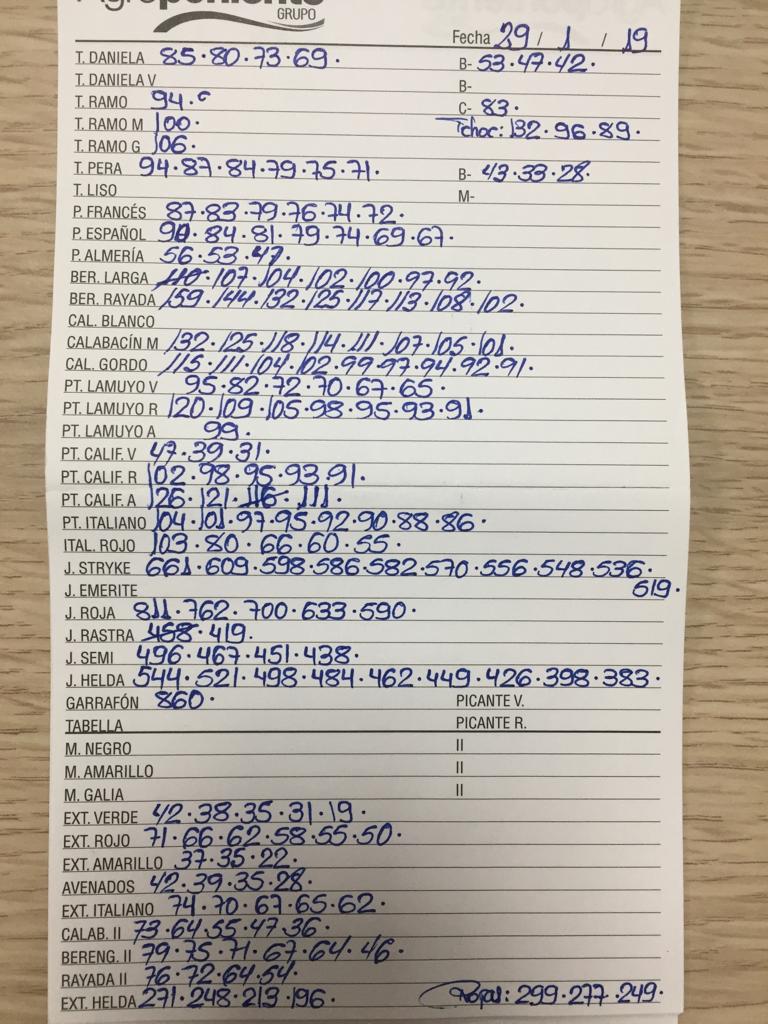 Agroponiente
GRUPO
Fecha 29 / 1 / 19
T. DANIELA 85·80·73·69· B- 53·47·42·
T. DANIELA V B-
T. RAMO 94· C- 83·
T. RAMO M 100· Tchoc: 132·96·89·
T. RAMO G 106·
T. PERA 94·87·84·79·75·71· B- 43·33·28·
T. LISO M-
P. FRANCÉS 87·83·79·76·74·72·
P. ESPAÑOL 90·84·81·79·74·69·67·
P. ALMERÍA 56·53·47·
BER. LARGA 110·107·104·102·100·97·92·
BER. RAYADA 159·144·132·125·117·113·108·102·
CAL. BLANCO
CALABACÍN M 132·125·118·114·111·107·105·101·
CAL. GORDO 115·111·104·102·99·97·94·92·91·
PT. LAMUYO V 95·82·72·70·67·65·
PT. LAMUYO R 120·109·105·98·95·93·91·
PT. LAMUYO A 99·
PT. CALIF. V 47·39·31·
PT. CALIF. R 102·98·95·93·91·
PT. CALIF. A 126·121·116·111·
PT. ITALIANO 104·101·97·95·92·90·88·86·
ITAL. ROJO 103·80·66·60·55·
J. STRYKE 661·609·598·586·582·570·556·548·536·
J. EMERITE 519·
J. ROJA 811·762·700·633·590·
J. RASTRA 458·419.
J. SEMI 496·467·451·438·
J. HELDA 544·521·498·484·462·449·426·398·383·
GARRAFÓN 860· PICANTE V.
TABELLA PICANTE R.
M. NEGRO II
M. AMARILLO II
M. GALIA II
EXT. VERDE 42·38·35·31·19·
EXT. ROJO 71·66·62·58·55·50·
EXT. AMARILLO 37·35·22·
AVENADOS 42·39·35·28·
EXT. ITALIANO 74·70·67·65·62·
CALAB. II 73·64·55·47·36·
BERENG. II 79·75·71·67·64·46·
RAYADA II 76·72·64·54·
EXT. HELDA 271·248·213·196· Rojas: 299·277·249·